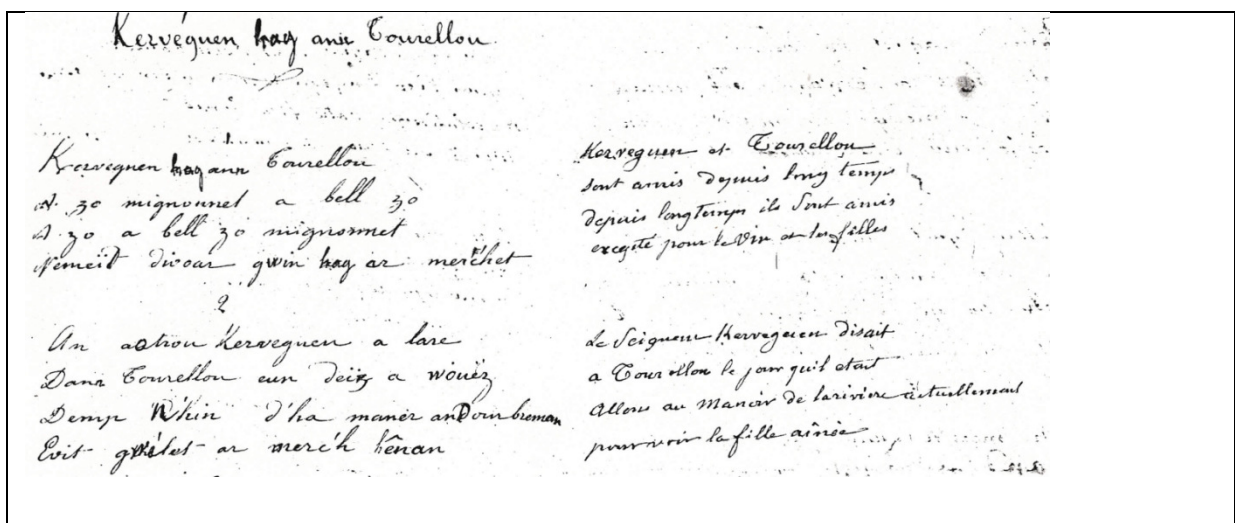 Kervéguen hag ann Tourellou
Kerveguen hag ann Tourellou
A zo mignounet a bell zo
A zo a bell zo mignonnet
Nemeit divoar gwin hag ar merc'het
2
An aotrou Kerveguen a lare
Dann Tourellou eun deiz a wouëz
Demp d'ha manér an Dour breman
Evit gwélet ar merc'h hénan
Kerveguen et Tourellou
sont amis depuis long temps
depuis longTemps ils sont amis
excepté pour le vin et les filles
Le Seigneur Kerveguen disait
a Tourellou le jour qu'il etait
Allons au Manoir de larivière actuellement
pour voir la fille aînée